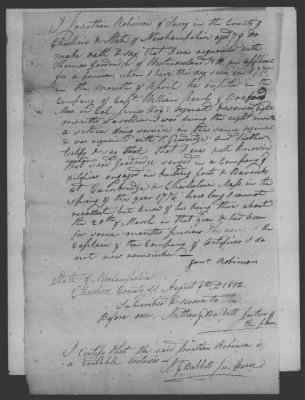 I Jonathan Robinson of Surry in the County of
Cheshire & State of Newhampshire aged 79 do
make oath & say that I was acquainted with
Thomas Goodridge of Westmoreland N.H. an applicant
for a pension whom I have this day seen in 1775
in the month of April he enlisted in the
Company of Capt William
in Col. James Regiment & served eight
months as a soldier. I was during the eight months
a soldier doing service in the same regiment
& was acquainted with sd Goodridge and further
testify & say that I was well knowing
that said Goodridge served in a Company of
artificers engaged in building fort & Barracks
at Cambridge & Charlestown Mass in the
Spring of the year 1776 how long I cannot
recollect but know of his being there about
the 20th of March in that year & had been
for some months previous The name of the
Captain of the Company of Artificers I do
not now remember —
Jont Robinson
State of Newhampshire
Cheshire County ss August 8th 1832
Subscribed & sworn to
Before me Nathan G Babbitt Justice of
the peace
I certify that the said Jonathan Robinson is
a credible witness — N G Babbitt Jus. Peace